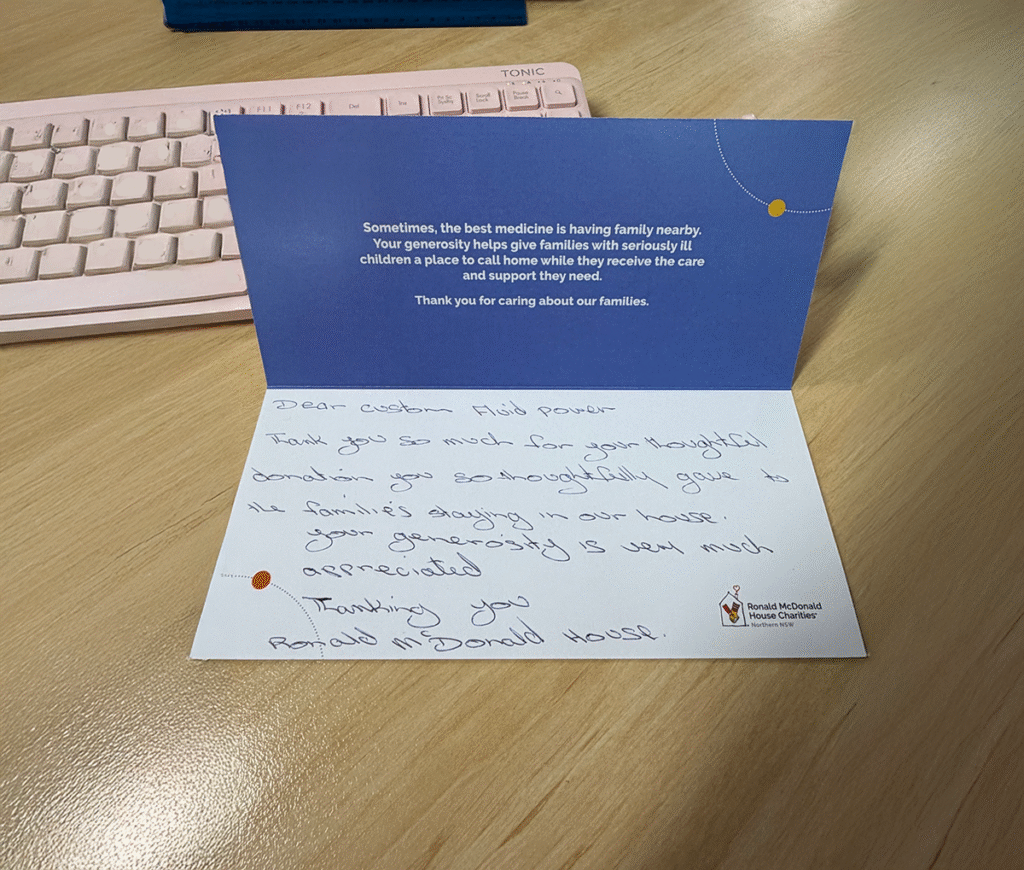 TONIC
F11 F12 Del Ins Prt Sc SysRq Scroll Lock Pause Break
Sometimes, the best medicine is having family nearby.
Your generosity helps give families with seriously ill
children a place to call home while they receive the care
and support they need.
Thank you for caring about our families.
Dear custom Fluid power
Thank you so much for your thoughtful
donation you so thoughtfully gave to
the families staying in our house.
your generosity is very much
appreciated
Thanking you
Ronald McDonald House.
Ronald McDonald
House Charities®
Northern NSW